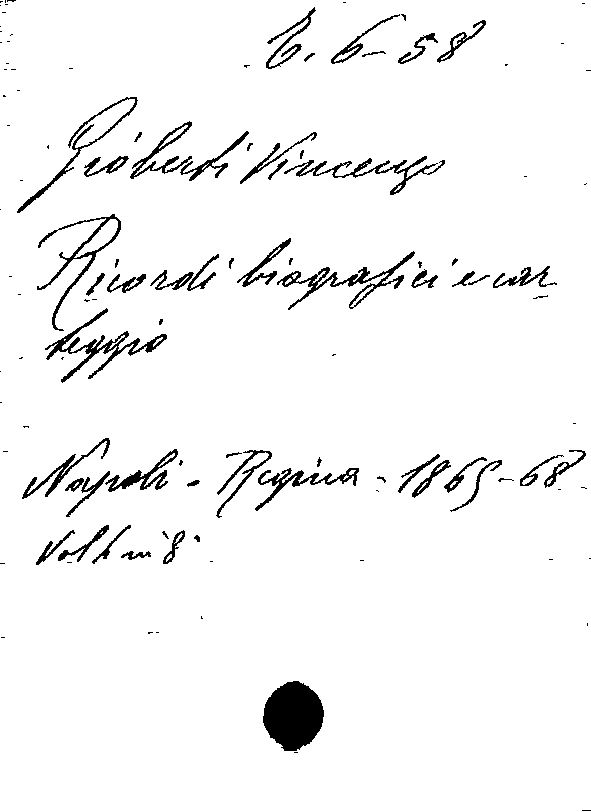 E. 6-58
Gioberti Vincenzo
Ricordi biografici e car
teggio
Napoli - Regina - 1865-68
Vol in 8°